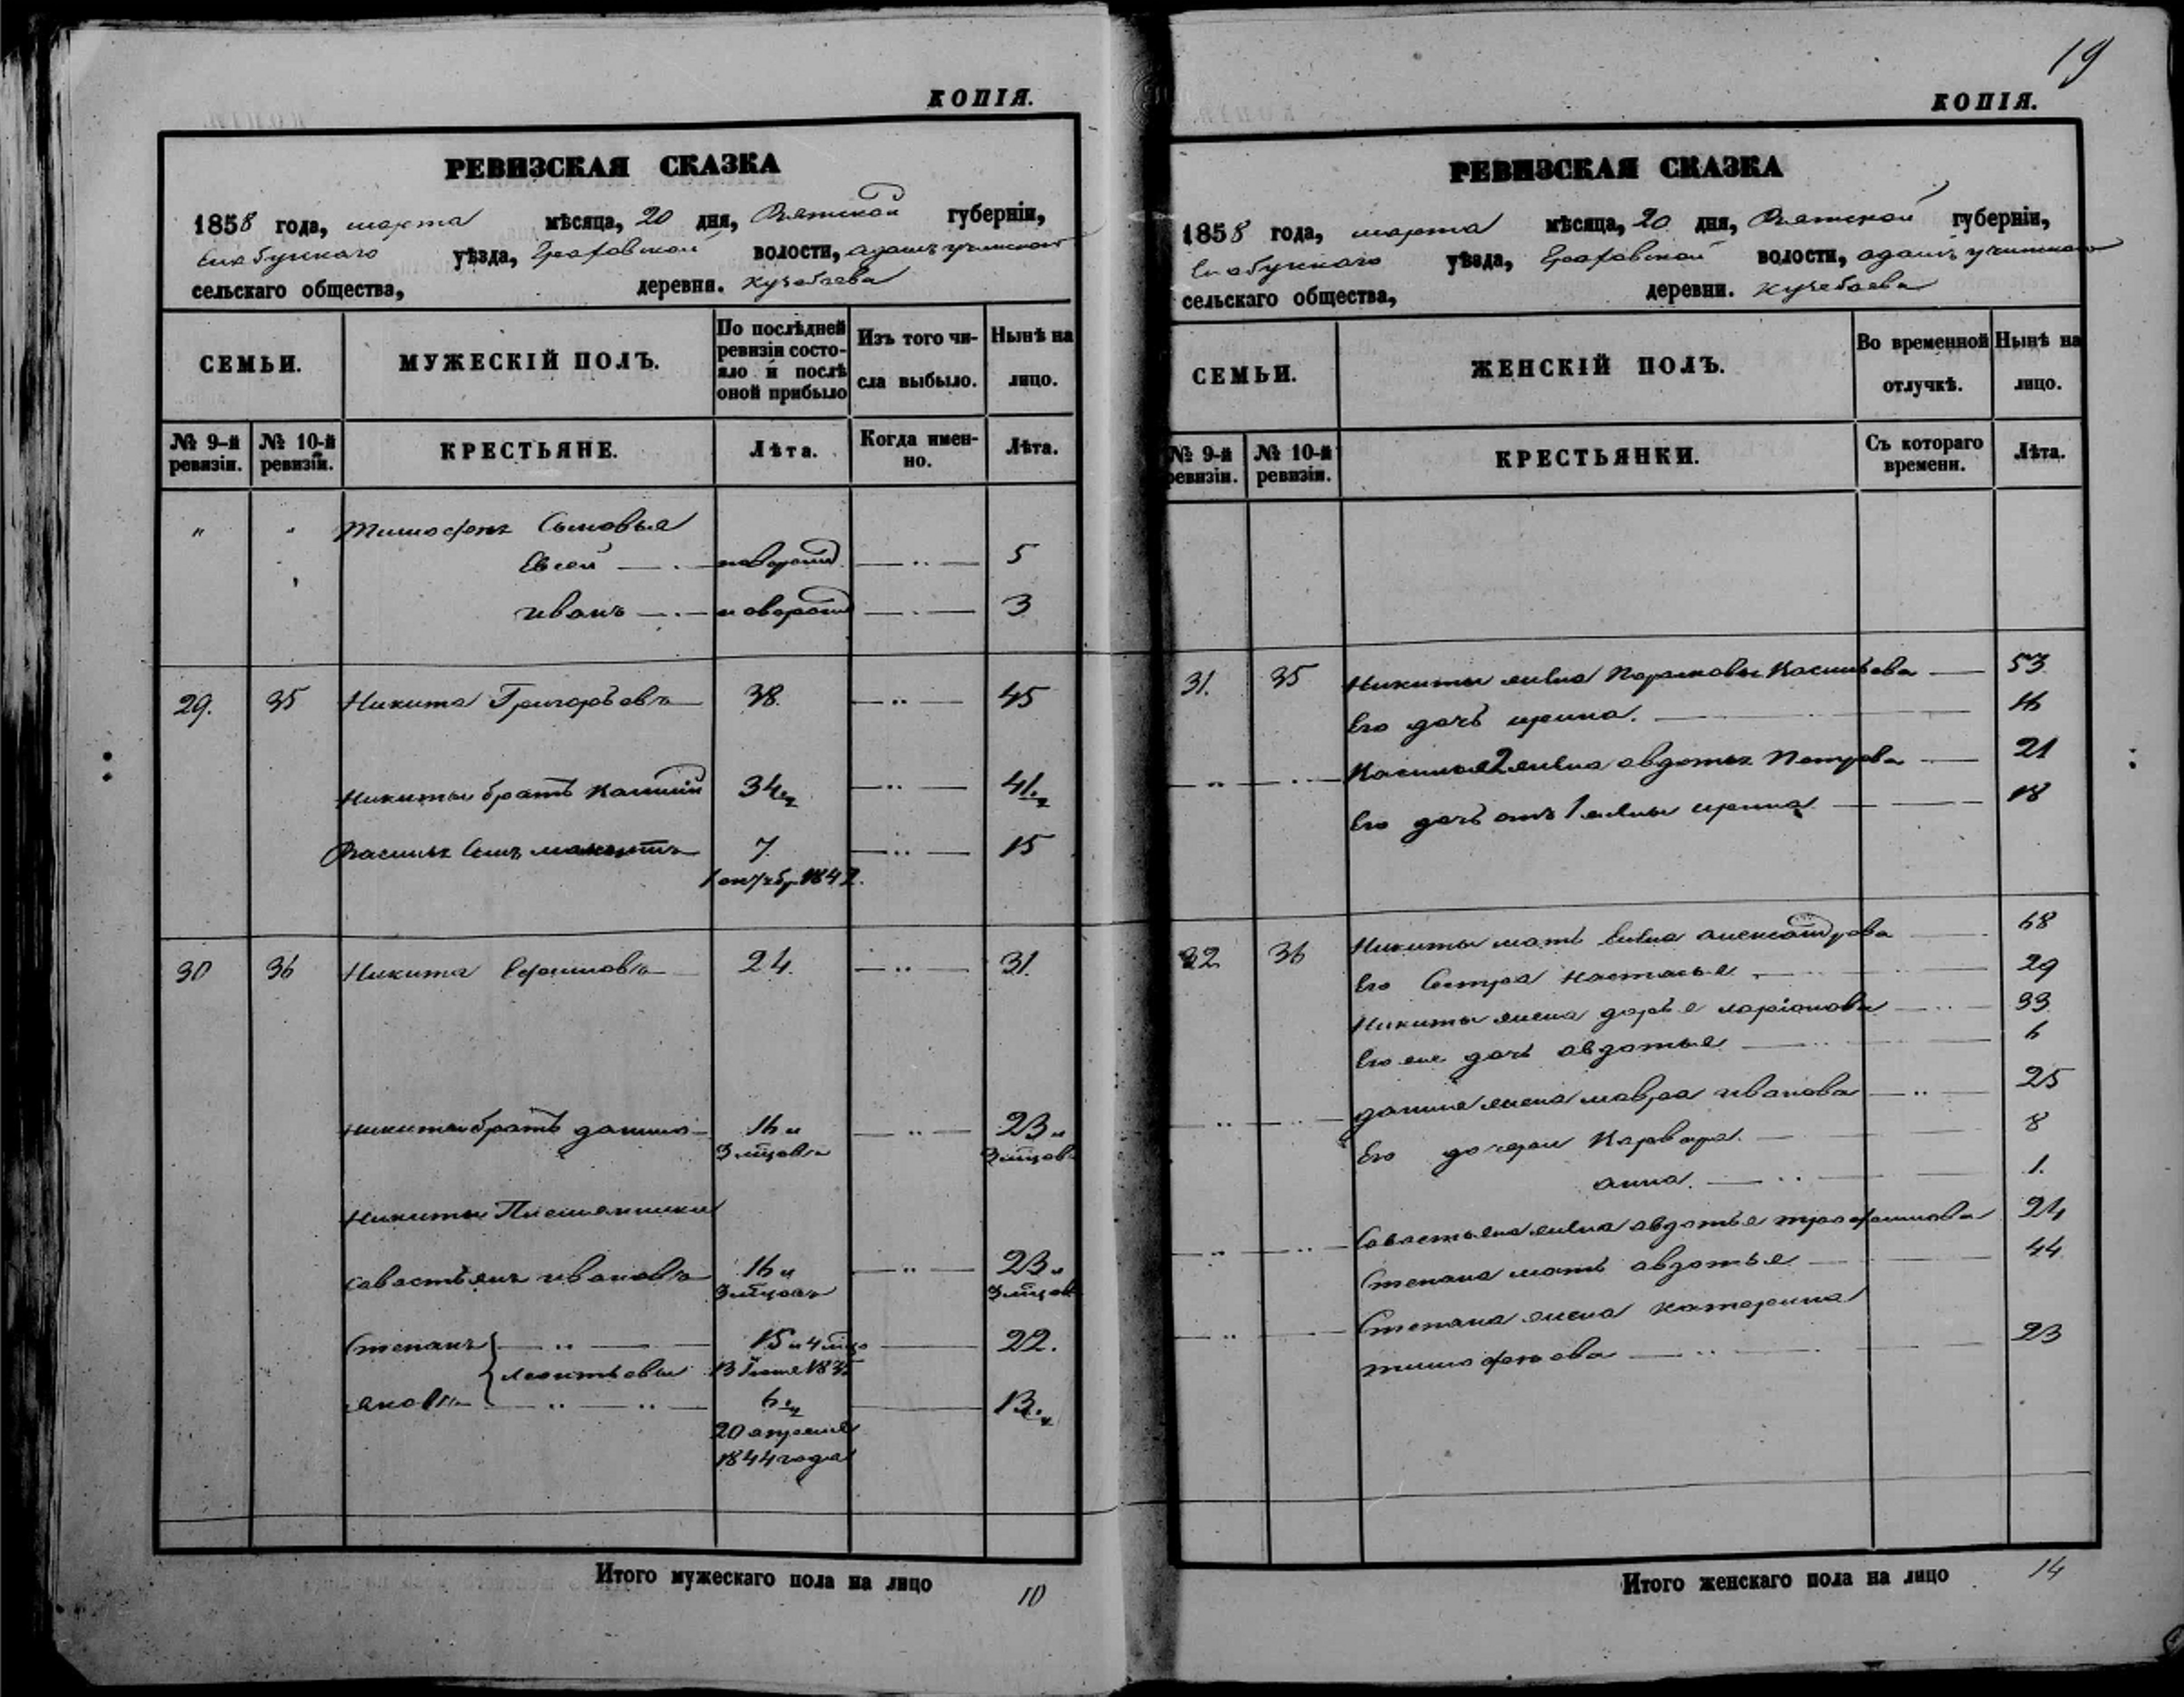 КОПІЯ.
РЕВИЗСКАЯ СКАЗКА
1858 года, марта мѣсяца, 20 дня, Вятской губерніи,
Елабужскаго уѣзда, Граховской волости,
сельскаго общества, деревня. Кучебаева
СЕМЬИ.
МУЖЕСКІЙ ПОЛЪ.
По послѣдней ревизіи состояло и послѣ оной прибыло
Изъ того числа выбыло.
Нынѣ на лицо.
№ 9-й ревизіи.
№ 10-й ревизіи.
КРЕСТЬЯНЕ.
Лѣта.
Когда именно.
Лѣта.
" " Тимофея Сыновья
Евсей новорожд 5
иванъ новорожд 3
29. 35 Никита Григорьевъ 38. 45
Никиты братъ 34 41.
сынъ 7. 15
1842.
30 36 Никита Ефимовъ 24. 31.
Никиты братъ данило 16 и 23 и
3 мцовъ 3 мцовъ
Никиты Племянники
Савостьянъ ивановъ 16 и 23 и
3 мцовъ 3 мцовъ
Степанъ 15 и 4 мцо 22.
Леонтьевы 13 Iюня 1835
яковъ 6 13.
20 апреля
1844 года
Итого мужескаго пола на лицо 10
19
КОПІЯ.
РЕВИЗСКАЯ СКАЗКА
1858 года, марта мѣсяца, 20 дня, Вятской губерніи,
Елабужскаго уѣзда, Граховской волости,
сельскаго общества, деревни. Кучебаева
СЕМЬИ.
ЖЕНСКІЙ ПОЛЪ.
Во временной отлучкѣ.
Нынѣ на лицо.
№ 9-й ревизіи.
№ 10-й ревизіи.
КРЕСТЬЯНКИ.
Съ котораго времени.
Лѣта.
31. 35 Никиты жена 53
Его дочь ирина. 16
2 жена авдотья Петрова 21
Его дочь отъ 1 жены ирина 18
32 36 Никиты мать Елена александрова 68
Его Сестра настасья 29
Никиты жена дарья ларіонова 33
Его же дочь авдотья 6
данила жена мавра иванова 25
Его дочери Варвара. 8
анна. 1.
Савостьяна жена авдотья трофимова 24
Степана мать авдотья 44
Степана жена катерина
тимофеева 23
Итого женскаго пола на лицо 14